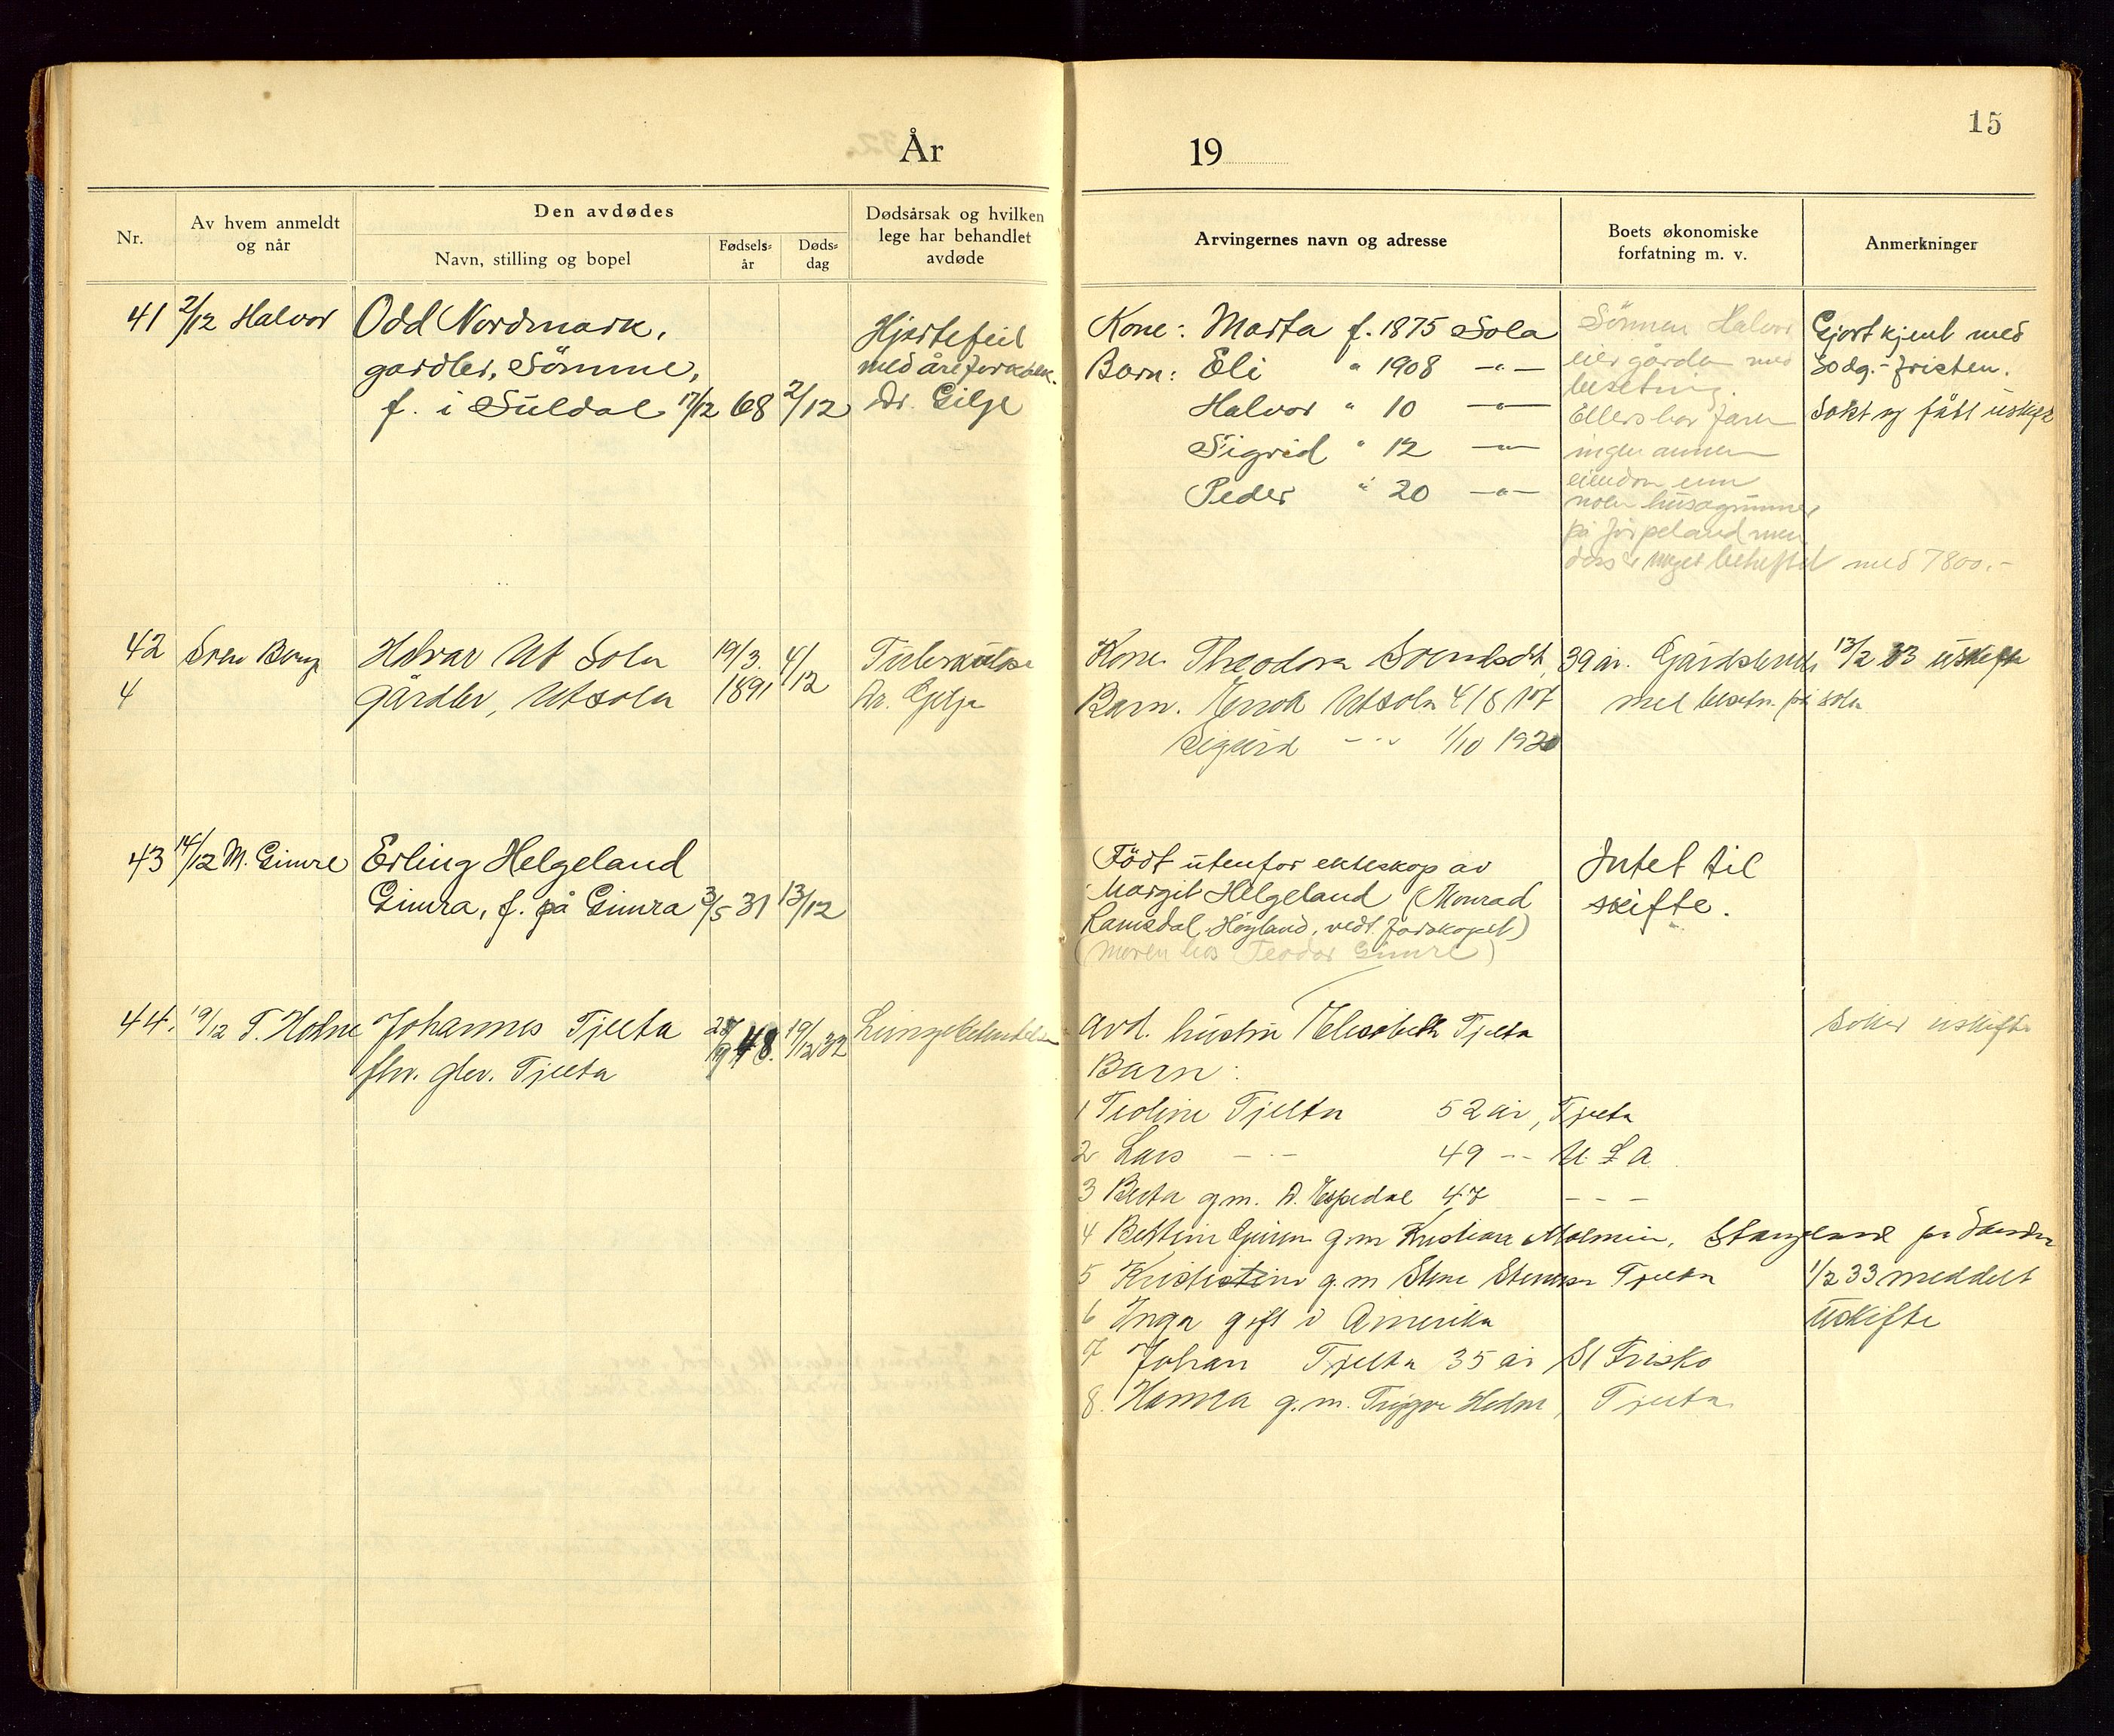 15
År 19
Nr.
Av hvem anmeldt
og når
Den avdødes
Navn, stilling og bopel
Fødsels-
år
Døds-
dag
Dødsårsak og hvilken
lege har behandlet
avdøde
Arvingernes navn og adresse
Boets økonomiske
forfatning m. v.
Anmerkninger
41 2/12 Halvor Odd Nordmark,
gardbr, Sömme,
f. i Suldal 17/12 68 2/12
Hjertefeil
med åreforkalk.
Dr. Gilje
Kone: Marta f. 1875 Sola
Barn: Eli " 1908 -"-
Halvor " 10 -"-
Sigrid " 12 -"-
Peder " 20 -"-
Sönnen Halvor
eier gården med
besetning.
Ellers har faren
ingen annen
eiendom enn
noen husagrunner
på Jörpeland men
er meget beheftet med 7800.-
Gjort kjent med
30 dg.-fristen.
Sökt og fått uskifte
42 Sven Berge Halvar Ut Sola 19/3. 4/12
4 gårdbr, Utsola 1891
Tuberkulose
Dr. Gilje
Kone Theodora 39 år. 13/2 33 uskifte
Barn. Enok Utsola
med besetn. på Sola
Sigurd - " 1/10 1920
43 14/12 M. Gimre Erling Helgeland
Gimra, f. på Gimra 3/5 31 13/12
Födt utenfor ekteskap av
Margit Helgeland (Monrad
Ramsdal, Högland, vedt. farskapet)
(Moren hos Teodor Gimre)
Intet til
skifte.
44. 19/12 T. Holme Johannes Tjelta 48. 19/12 32 Lungebetendelse
fhv. gbr. Tjelta
Avd. hustru Elisabeth Tjelta
söker uskifte
Barn:
1 Teoline Tjelta 52 år, Tjelta
2 Lars - " - 49 -"- U. S. A.
3 Berta g.m. A. Espedal 47 - - -
4 g.m. Kristian Malmin, Stangeland pr Sandnes
5 Kristine g.m. Stene Tjelta
6 Inga gift i Amerika
7 Johan Tjelta 35 år St Frisko
8. Hanna g.m. Trygve Holme, Tjelta
1/2 33 meddelt
Uskifte